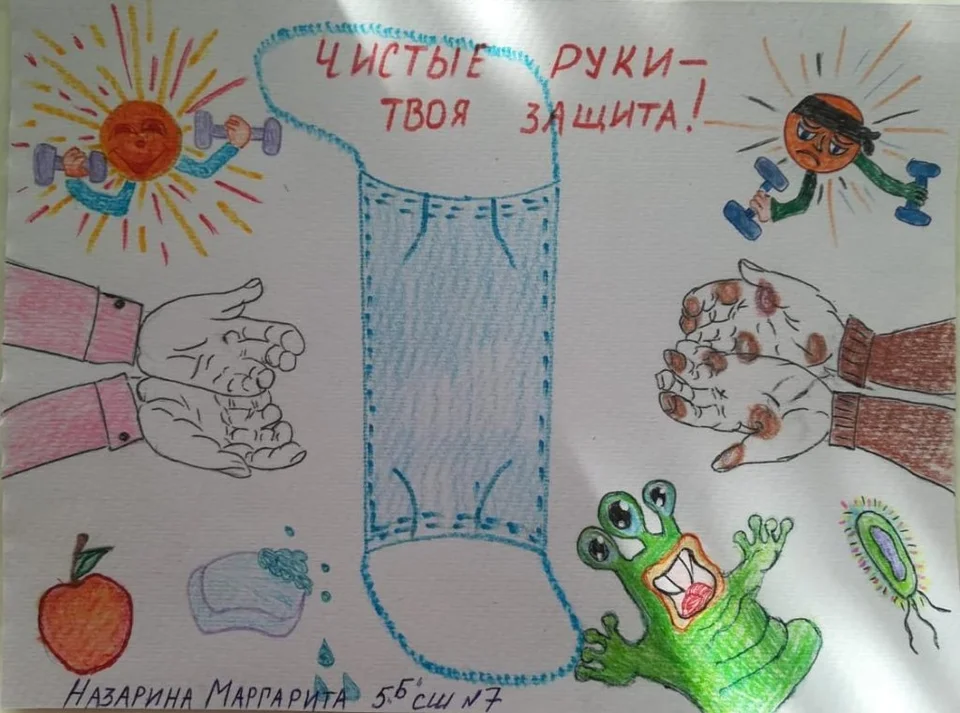 ЧИСТЫЕ РУКИ–
ТВОЯ ЗАЩИТА!
НАЗАРИНА МАРГАРИТА 5"Б" СШ N7